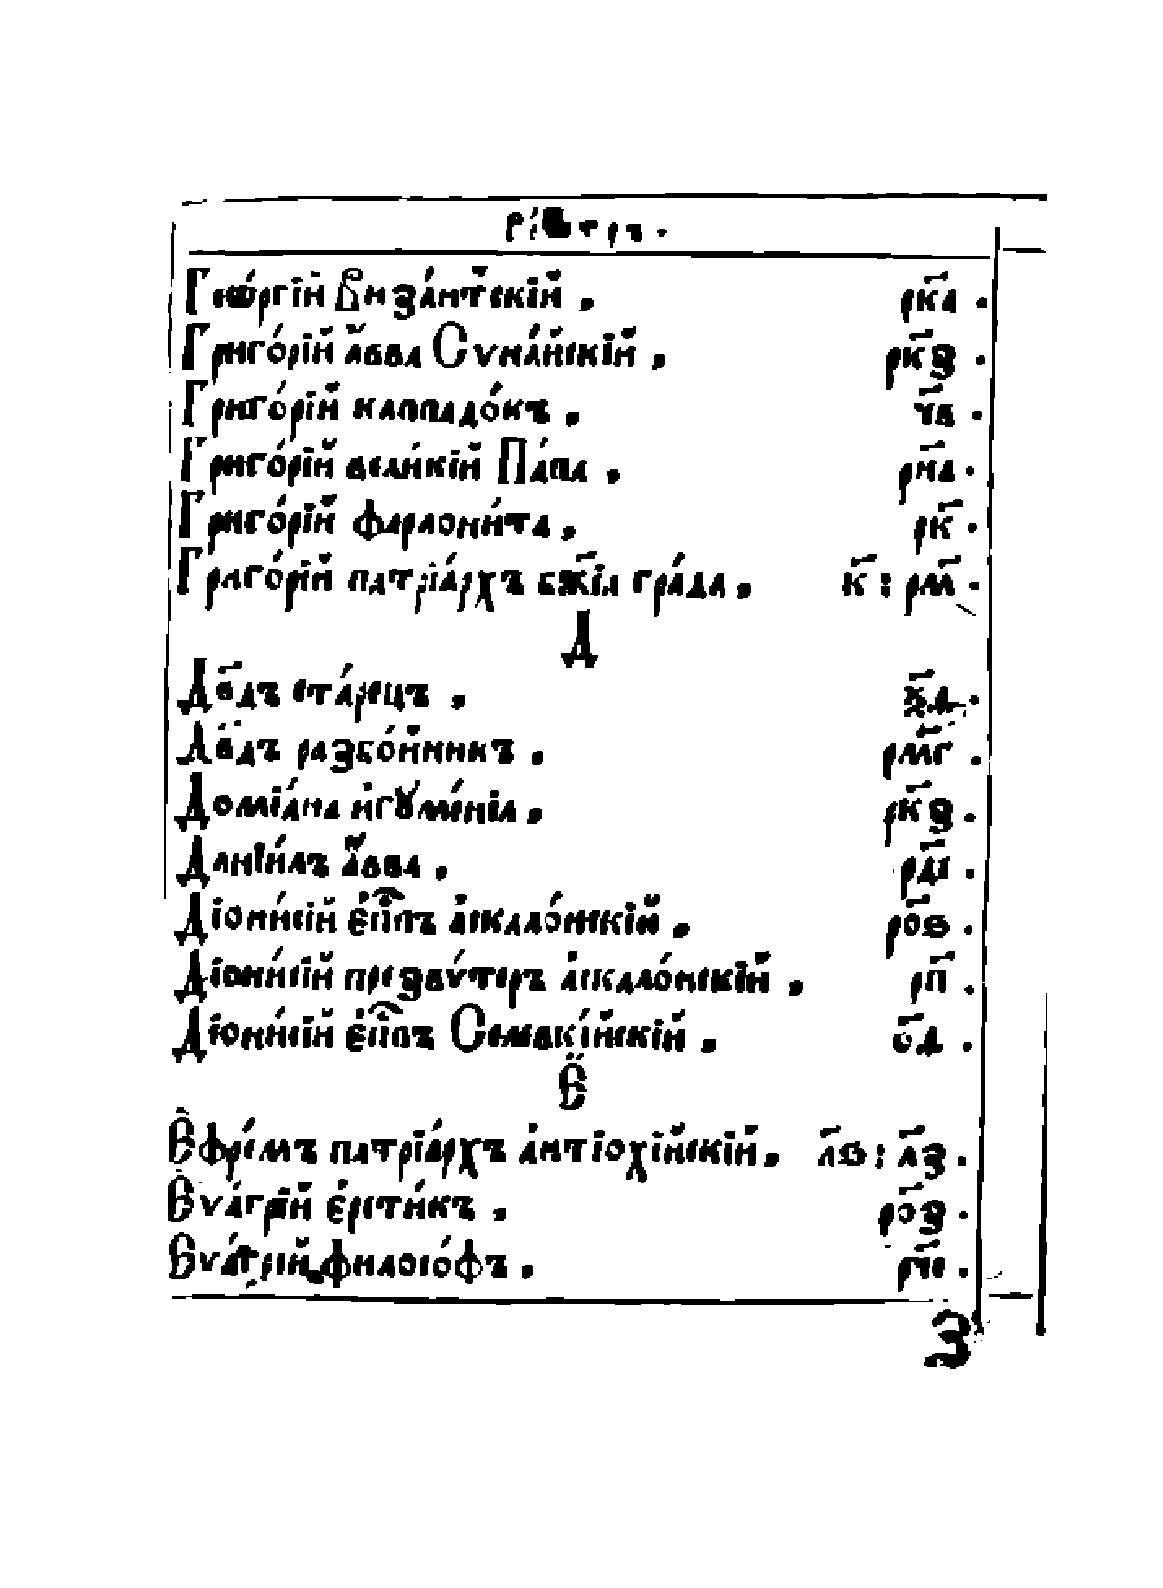 Геѡ́ргїй Виза́нтїскїй . рк҃а .
Григо́рїй а҆́вва Сѵна́йскїй . рк҃з .
Григо́рїй каппадо́къ . ч҃в .
Григо́рїй вели́кїй Па́па . рн҃а .
Григо́рїй фараони́та . рк҃ .
Григо́рїй патрїа́рхъ бж҃їа гра́да . к҃ : рм҃ .
Д
Дв҃дъ ста́рецъ .
Дв҃дъ разбо́йникъ . рмг҃ .
Домїа́на и҆гꙋ́менїа . рк҃з .
Данїи́лъ а҆́вва . рд҃і .
Дїони́сїй є҆пⷭ҇пъ а҆скало́нскїй . ро҃ѕ .
Дїони́сїй презвѵ́теръ а҆скало́нскїй . рп҃ .
Дїони́сїй є҆пⷭ҇пъ Селевкі́йскїй . о҃д .
Є
Є҆фре́мъ патрїа́рхъ а҆нтїохі́йскїй . л҃в : л҃з .
Є҆ѵа́грїй є҆рети́къ . ро҃з .
Є҆ѵа́грїй филосо́фъ .
З